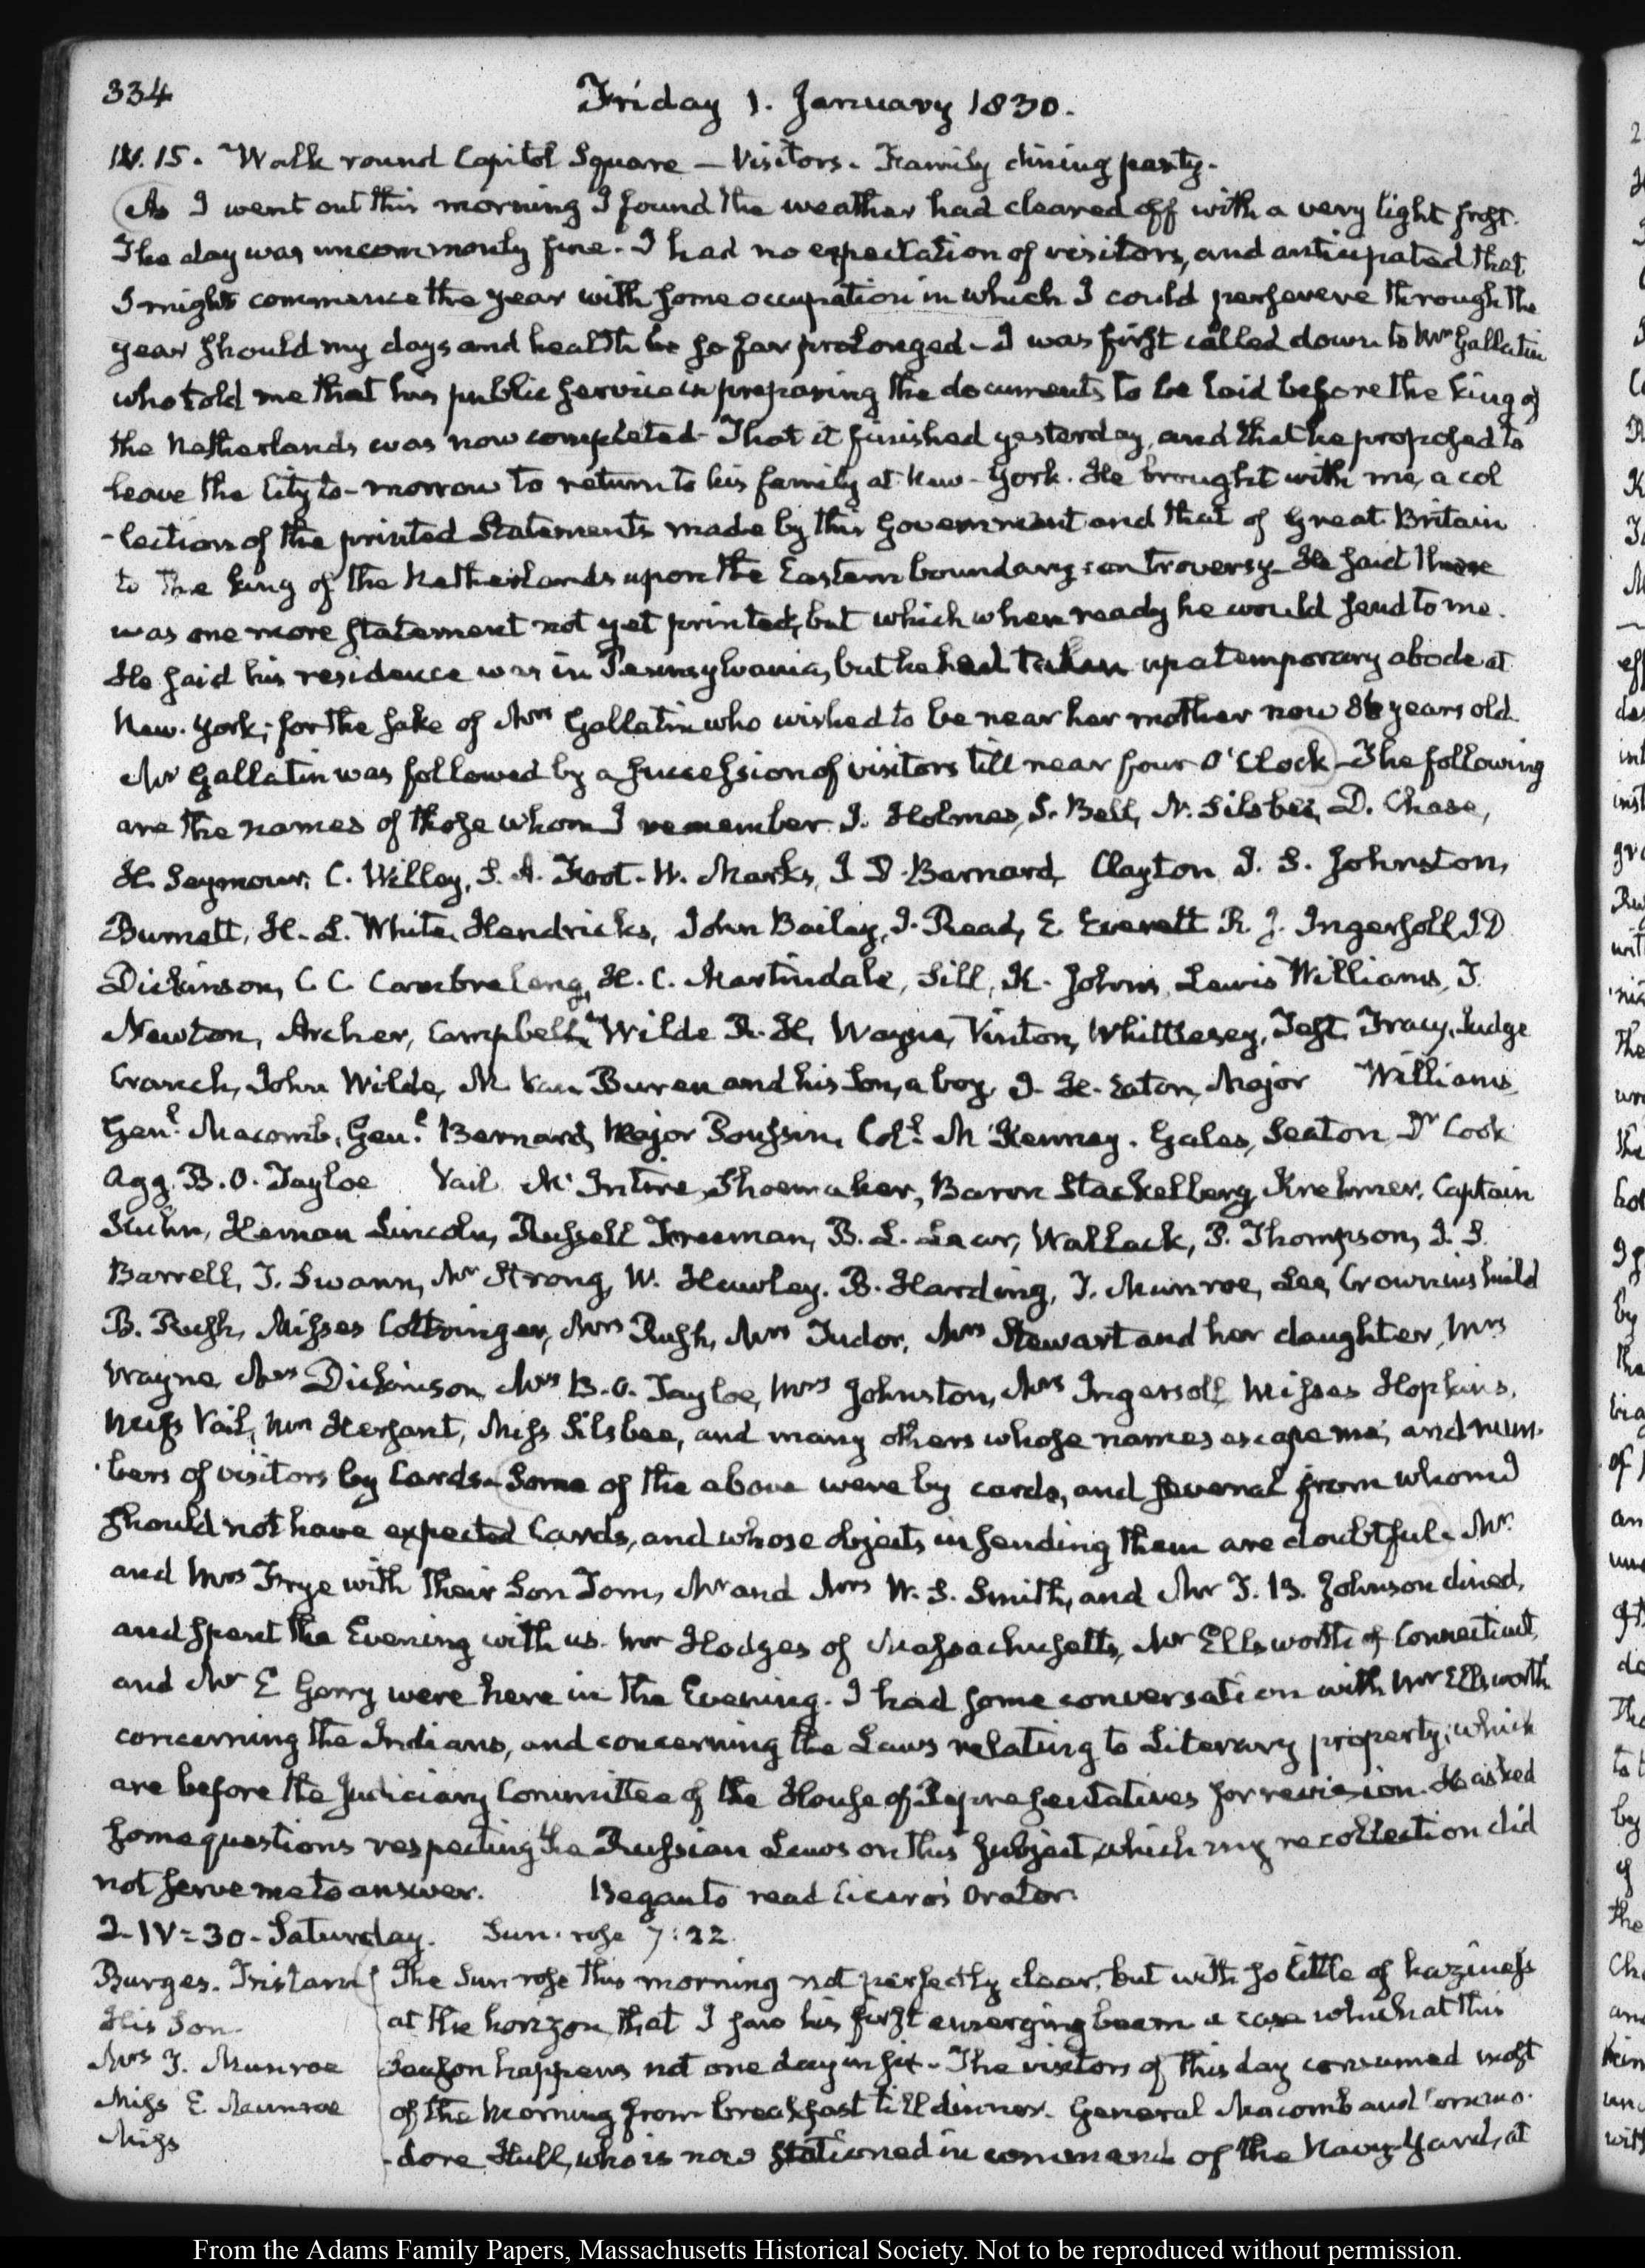 334
Friday 1. January 1830.
IV. 15. Walk round Capitol Square — Visitors. Family dining party.
As I went out this morning I found the weather had cleared off with a very light frost.
The day was uncommonly fine. I had no expectation of visitors, and anticipated that
I might commence the year with some occupation in which I could persevere through the
year should my days and health be so far prolonged. I was first called down to Mr Gallatin
who told me that his public service in preparing the documents to be laid before the king of
the Netherlands was now completed. That it finished yesterday, and that he proposed to
leave the City to-morrow to return to his family at New-York. He brought with me, a col
-lection of the printed Statements made by this Government and that of Great Britain
to the King of the Netherlands upon the Eastern boundary controversy. He said there
was one more statement not yet printed, but which when ready he would send to me.
He said his residence was in Pennsylvania, but he had taken up a temporary abode at
New-York; for the sake of Mrs Gallatin who wished to be near her mother now 86 years old.
Mr Gallatin was followed by a succession of visitors till near four O'Clock. The following
are the names of those whom I remember. J. Holmes, S. Bell, N. Silsbee, D. Chase,
H. Seymour, C. Willey, S. A. Foot. W. Marks, I D. Barnard, Clayton J. S. Johnston,
Burnett, H. L. White, Hendricks, John Bailey, J. Read, E. Everett R. J. Ingersoll, J D
Dickinson, C C Cambreleng, H. C. Martindale, Sill, K. Johns, Lewis Williams, T.
Newton, Archer, Campbell, Wilde R. H, Wayne, Vinton, Whittlesey, Test, Tracy, Judge
Cranch, John Wilde, M. Van Buren and his Son, a boy, J. H. Eaton, Major Williams,
Genl. Macomb, Genl. Bernard, Major Poussin, Coll. McKenney. Gales, Seaton, Dr Cook
Ogg, B. O. Tayloe Vail McIntire, Shoemaker, Baron Stackelberg, Krehmer, Captain
Kuhn, Heman Lincoln, Russell Freeman, B. L. Lear, Wallack, P. Thompson, J. S.
Barrell, T. Swann, Mr Strong, W. Hawley. B. Harding, T. Munroe, Lee, Crowninshield
B. Rush, Misses Cottringer, Mrs Rush, Mrs Tudor, Mrs Stewart and her daughter, Mrs
Wayne, Mrs Dickinson, Mrs B. O. Tayloe, Mrs Johnston, Mrs Ingersoll, Misses Hopkins,
Miss Vail, Mrs Hersant, Miss Silsbee, and many others whose names escape me, and num-
-bers of visitors by Cards. Some of the above were by cards, and several from whom I
should not have expected Cards, and whose objects in sending them are doubtful. Mr
and Mrs Frye with their Son Tom, Mr and Mrs W. S. Smith, and Mr T. B. Johnson dined,
and spent the Evening with us. Mr Hodges of Massachusetts, Mr Ellsworth of Connecticut,
and Mr E Gerry were here in the Evening. I had some conversation with Mr Ellsworth
concerning the Indians, and concerning the Laws relating to Literary property, which
are before the Judiciary Committee of the House of Representatives for revision. He asked
some questions respecting the Russian Laws on this subject, which my recollection did
not serve me to answer. Began to read Cicero's Orator.
2. IV=30. Saturday. Sun rose 7:22.
Burges. Tristam
His Son.
Mrs T. Munroe
Miss E Munroe
Miss
The Sun rose this morning not perfectly clear, but with so little of haziness
at the horizon that I saw his first emerging beam a case which at this
season happens not one day in six. The visitors of this day consumed most
of the Morning from breakfast till dinner. General Macomb and Commo-
-dore Hull, who is now stationed in command of the Navy-Yard, at
From the Adams Family Papers, Massachusetts Historical Society. Not to be reproduced without permission.